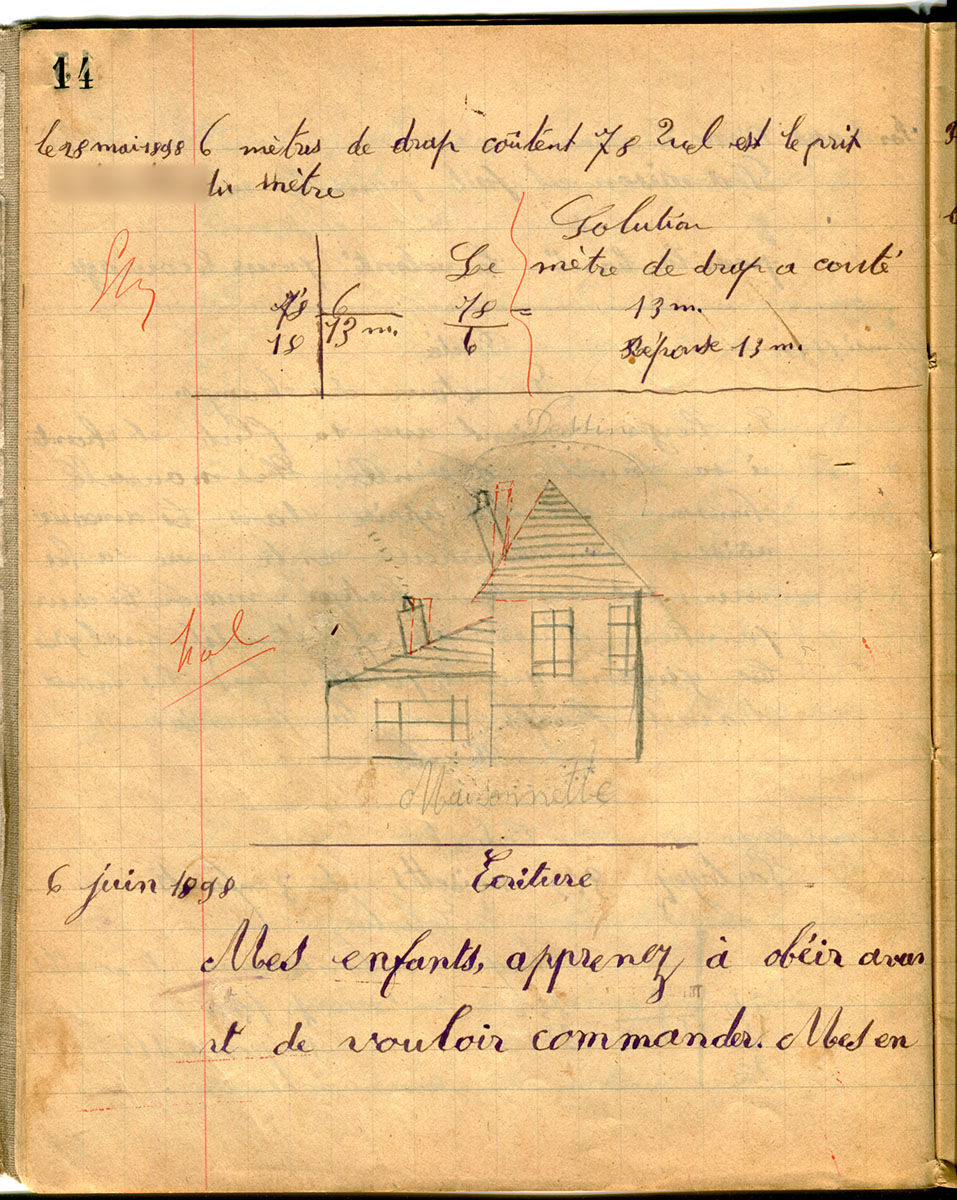 14
le 28 mai 1898 6 mètres de drap coûtent 78 Quel est le prix
du mètre
Solution
Le mètre de drap a couté
78 6
13 m.
18
78
6
=
13 m.
Réponse 13 m.
Dessin
Maisonnette
6 juin 1898
Ecriture
Mes enfants, apprenez à obéir avan
t de vouloir commander. Mes en